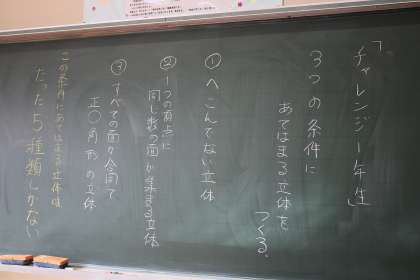 「チャレンジ1年生」
3つの条件に
あてはまる立体を
つくる。
①へこんでない立体
②1つの頂点に
同じ数の面が集まる立体
③すべての面が合同で
正〇角形の立体
この条件にあてはまる立体は
たった5種類しかない